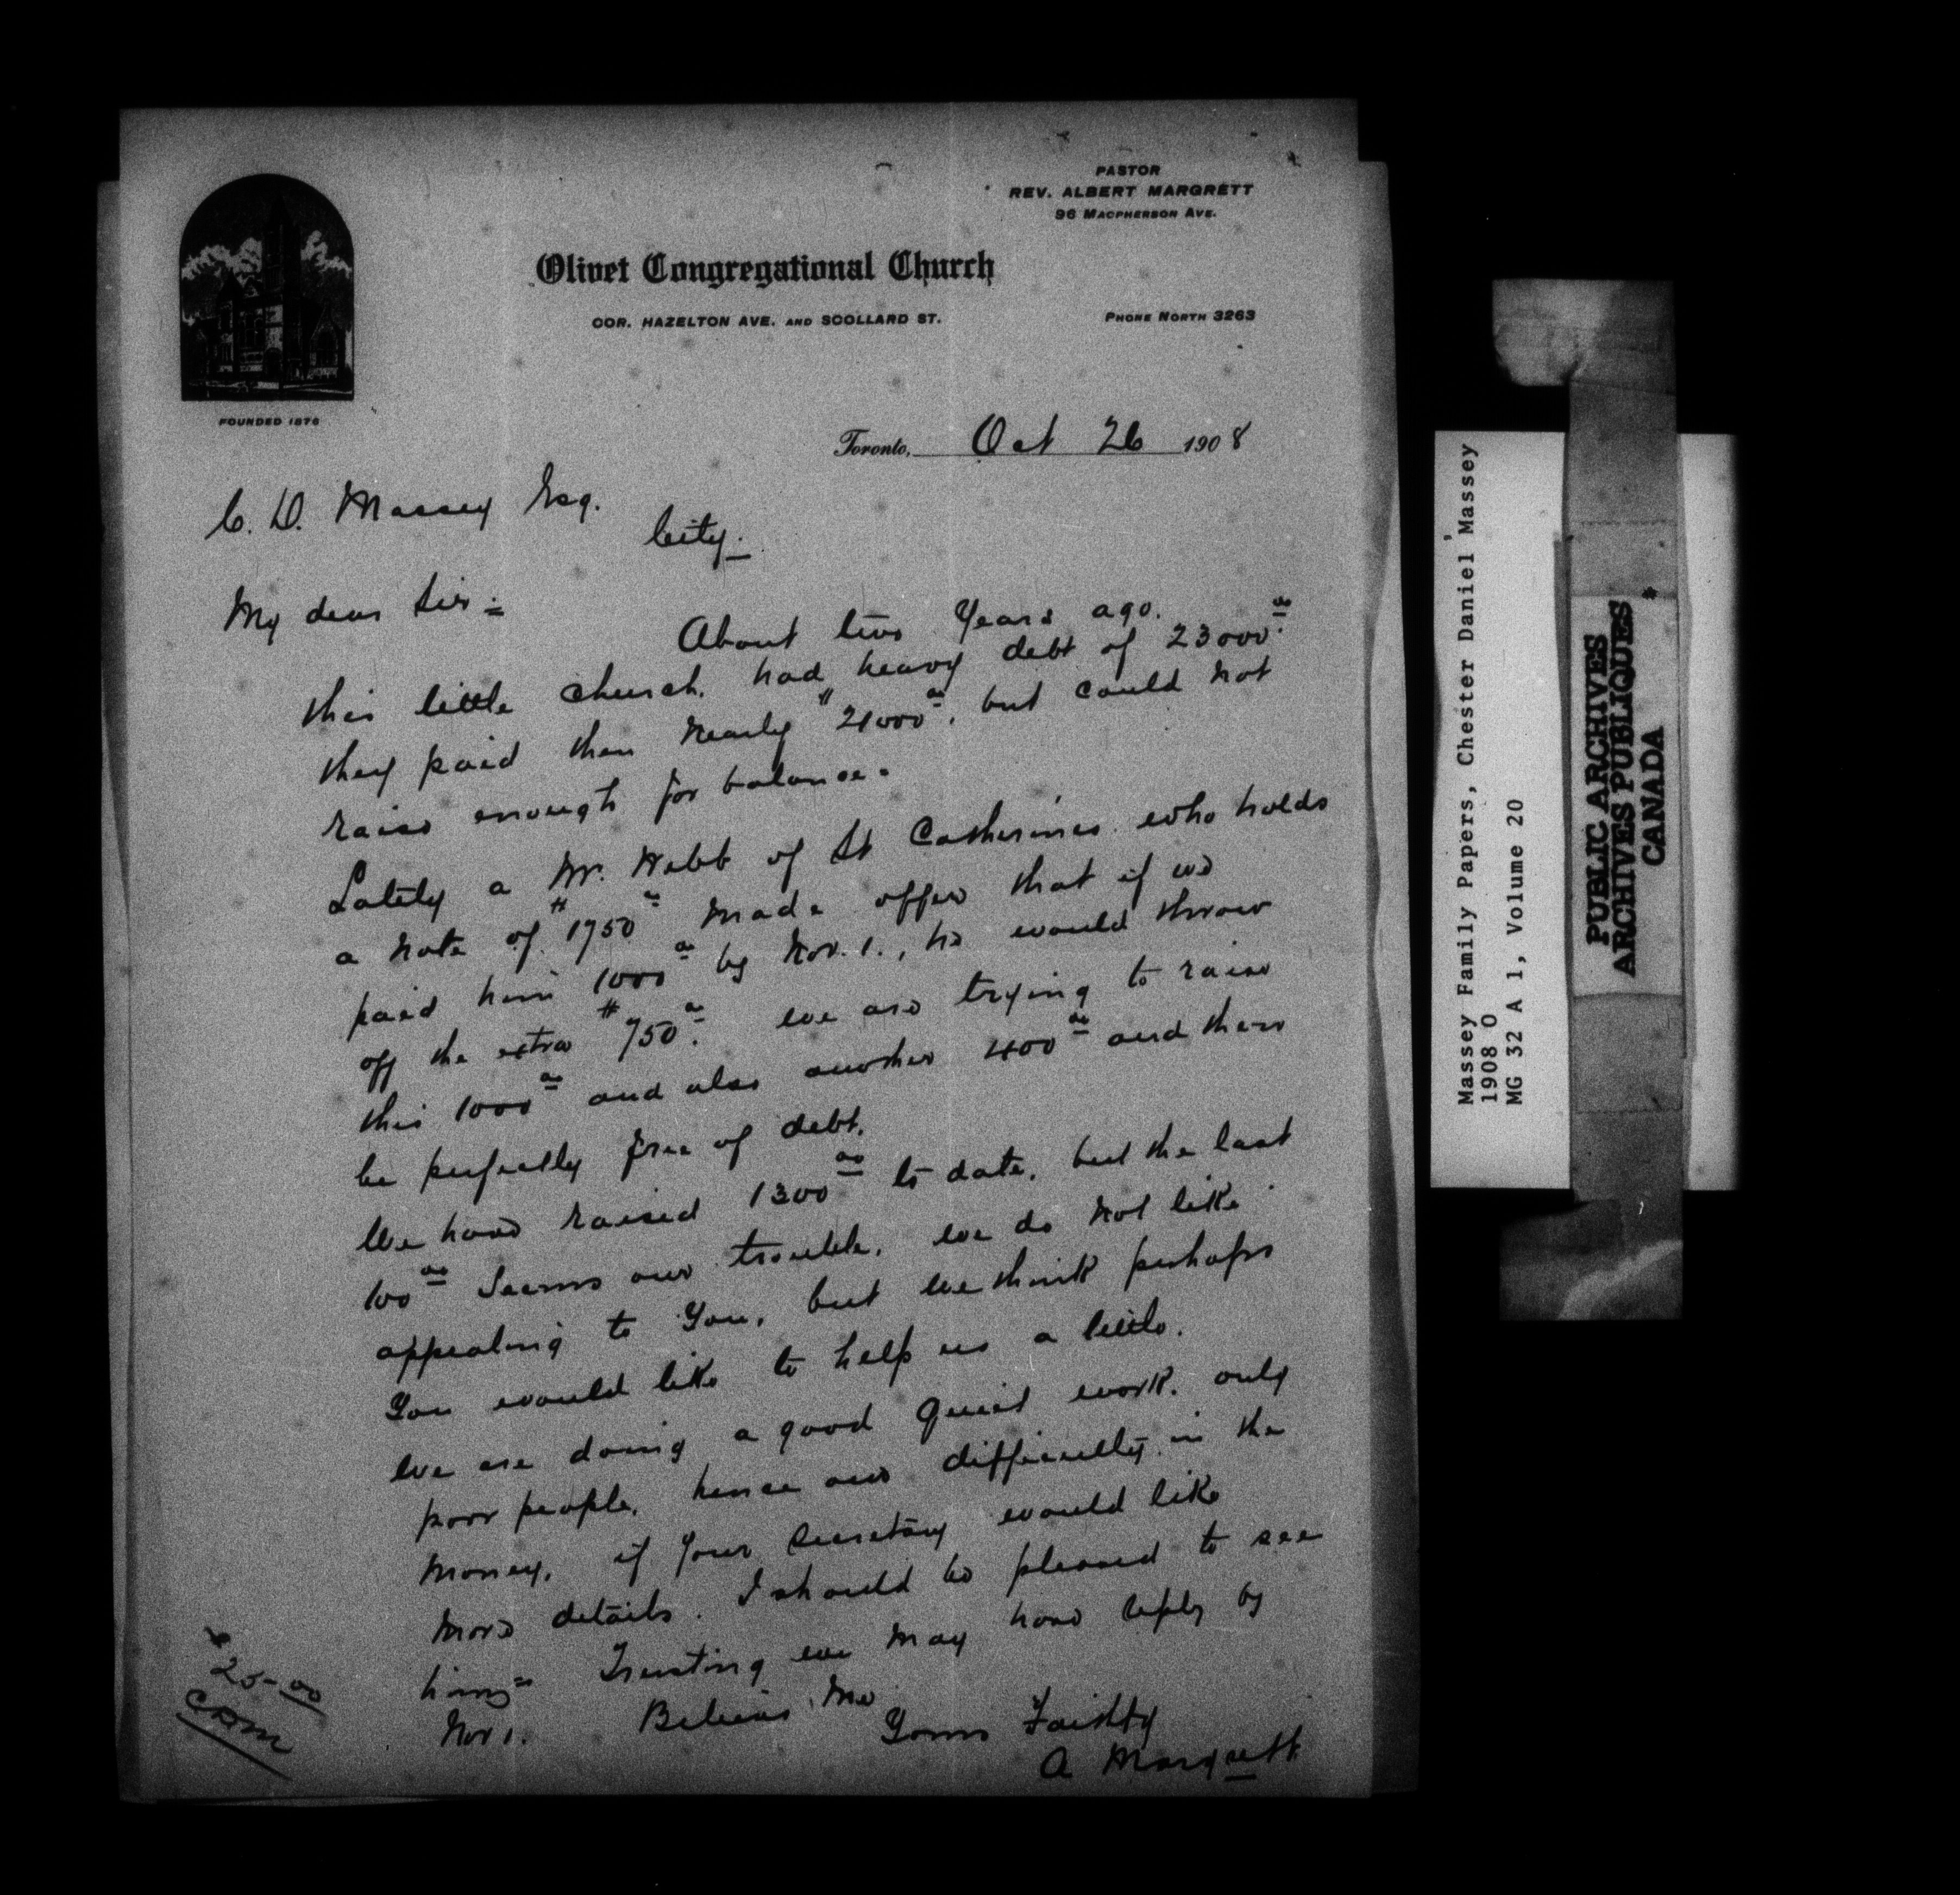 PASTOR
REV. ALBERT MARGRETT
96 MACPHERSON AVE.
Olivet Congregational Church
COR. HAZELTON AVE. AND SCOLLARD ST.
PHONE NORTH 3263
FOUNDED 1876
Toronto, Oct 26 1908
C. D. Massey Esq.
City.
My dear Sir:
About two Years ago.
this little church. had heavy debt of 23000.00
they paid then nearly $21000.00, but could not
raise enough for balance.
Lately a Mr. Webb of St Catherines. who holds
a note of $1750.00 made offer that if we
paid him 1000.00 by Nov. 1., he would throw
off the extra $750.00. we are trying to raise
this 1000.00 and also another 400.00 and then
be perfectly free of debt.
We have raised 1300.00 to date. but the last
100.00 seems our trouble. we do not like
appealing to You, but we think perhaps
You would like to help us a little.
We are doing a good quiet work. only
poor people. hence our difficulty in the
money. if Your Secretary would like
more details. I should be pleased to see
him= Trusting we may have reply by
Nov 1. Believe Me
Yours Faithfy
A Margrett
$25-00
CDM
Massey Family Papers, Chester Daniel Massey
1908 O
MG 32 A 1, Volume 20
PUBLIC ARCHIVES
ARCHIVES PUBLIQUES
CANADA